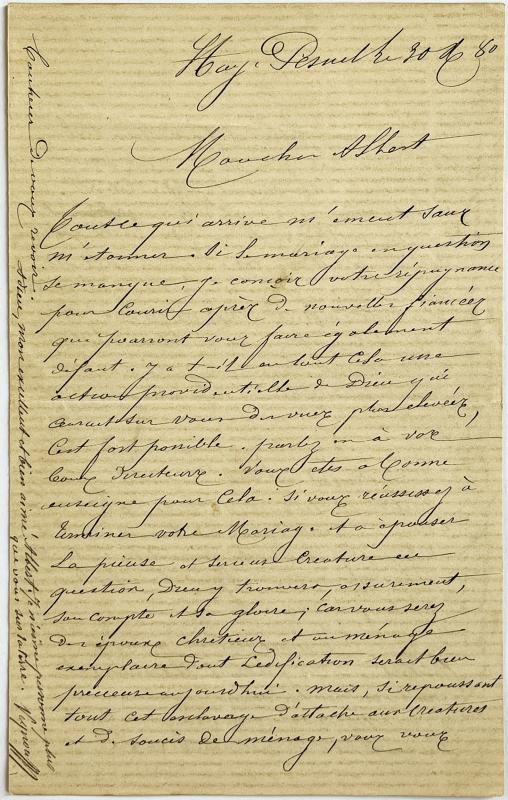 Hay. Pesnel le 30 80
Mon cher Albert
Tout ce qui arrive m'émeut sans
m'étonner. Si le mariage en question
se manque, je conçois votre répugnance
pour courir après de nouvelles fiancées
qui pourront vous faire également
défaut. Y a t-il en tout cela une
action providentielle de Dieu qui
aurait sur vous des vues plus élevées,
c'est fort possible. parlez en à vos
bons directeurs. Vous êtes a bonne
enseigne pour cela. Si vous réussissez à
terminer votre Mariage et a épouser
la pieuse et serieuse Creature en
question, Dieu y trouvera, assurement,
son compte et sa gloire; car vous serez
des époux chretiens et un ménage
exemplaire dont l'edification serait bien
precieuse aujourdhui. mais, si repoussant
tout cet esclavage d'attache aux Creatures
et de soucis de ménage, vous vous
bonheur de vous revoir.
Adieu, mon excellent et bien aimé Albert, je n'aime personne plus
que vous sur la terre.